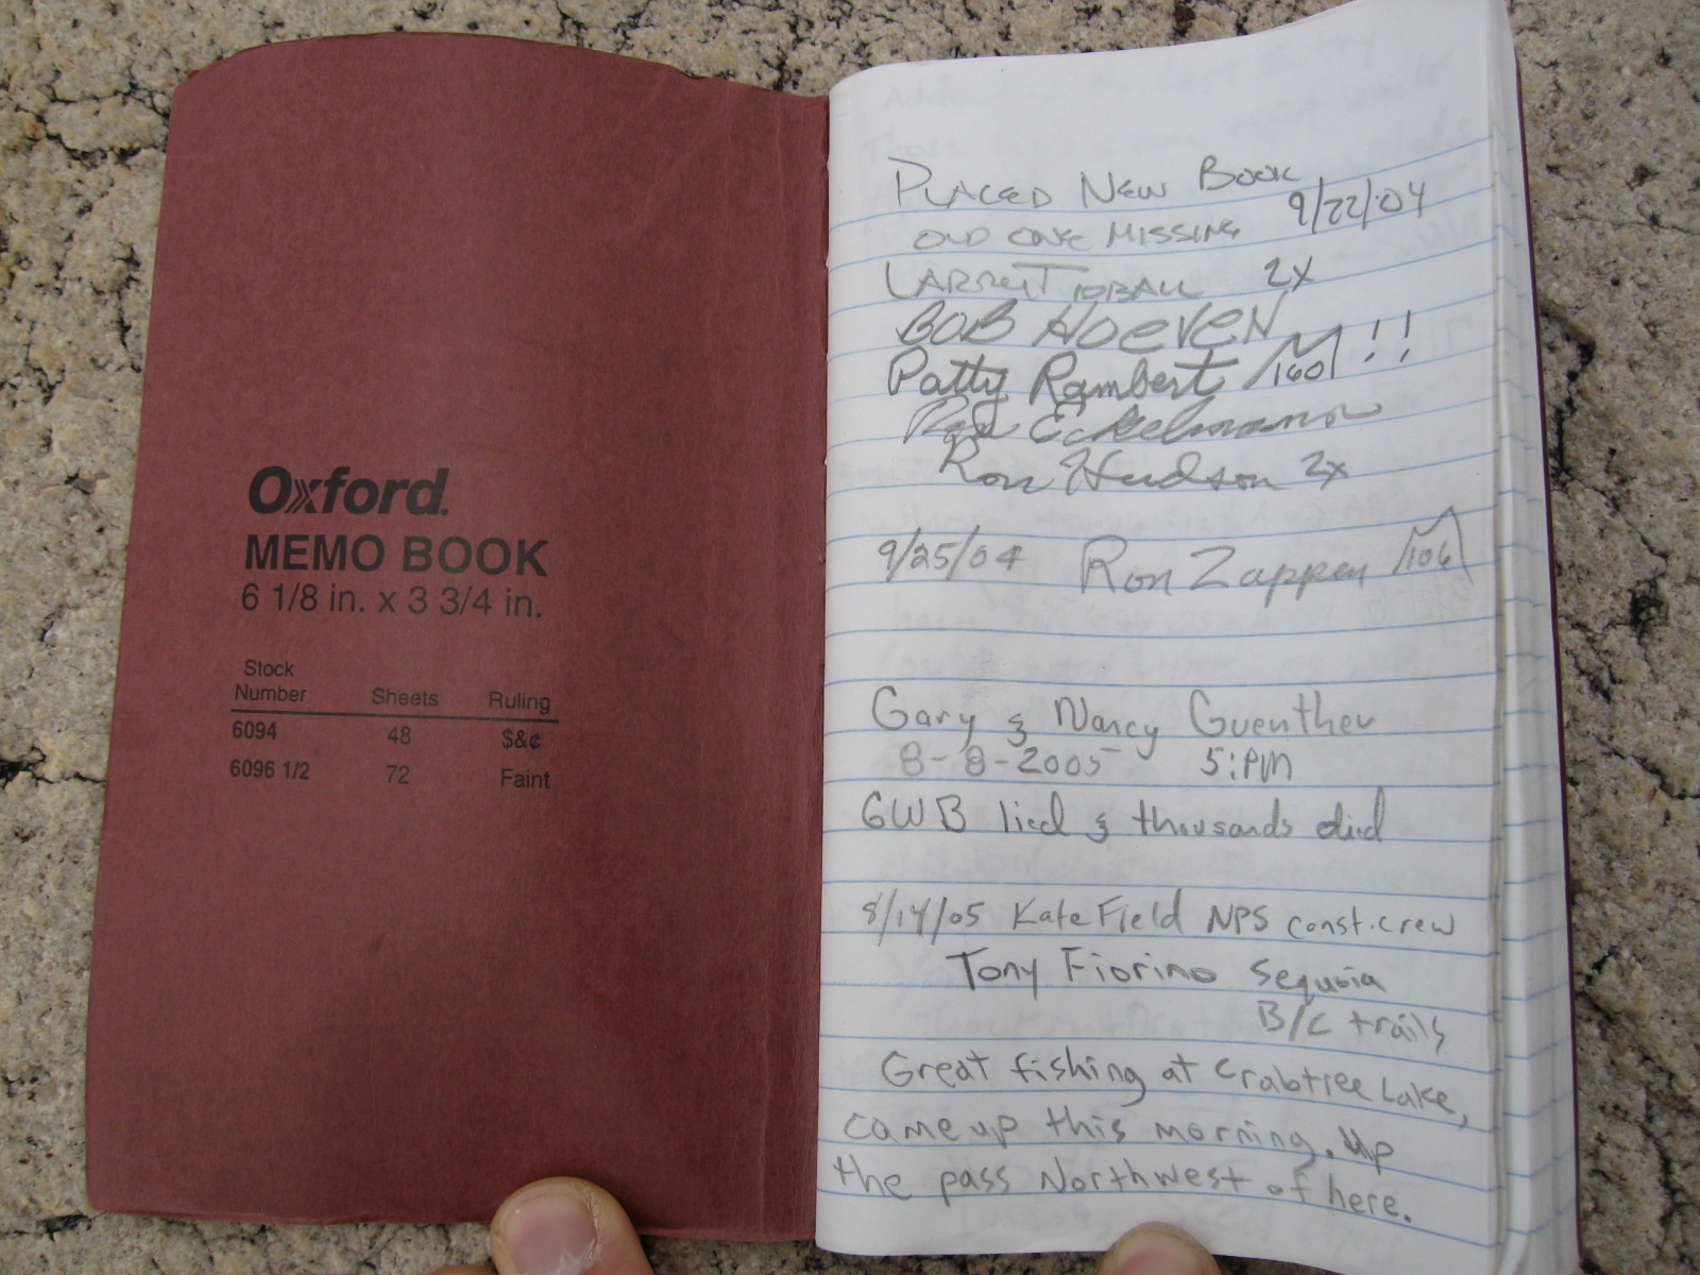 Oxford.
MEMO BOOK
6 1/8 in. x 3 3/4 in.
Stock
Number Sheets Ruling
6094 48 $&¢
6096 1/2 72 Faint
PLACED NEW BOOK
OLD ONE MISSING 9/22/04
2X
BOB HOEVEN
Patty Rambert 160 !!
Eckelmann
Ron Hudson 2x
9/25/04 Ron Zappen 106
Gary & Nancy Guenther
8-8-2005 5:PM
GWB lied & thousands died
8/14/05 Kate Field NPS const. crew
Tony Fiorino Sequoia
B/C trails
Great fishing at Crabtree Lake,
came up this morning. Up
the pass Northwest of here.